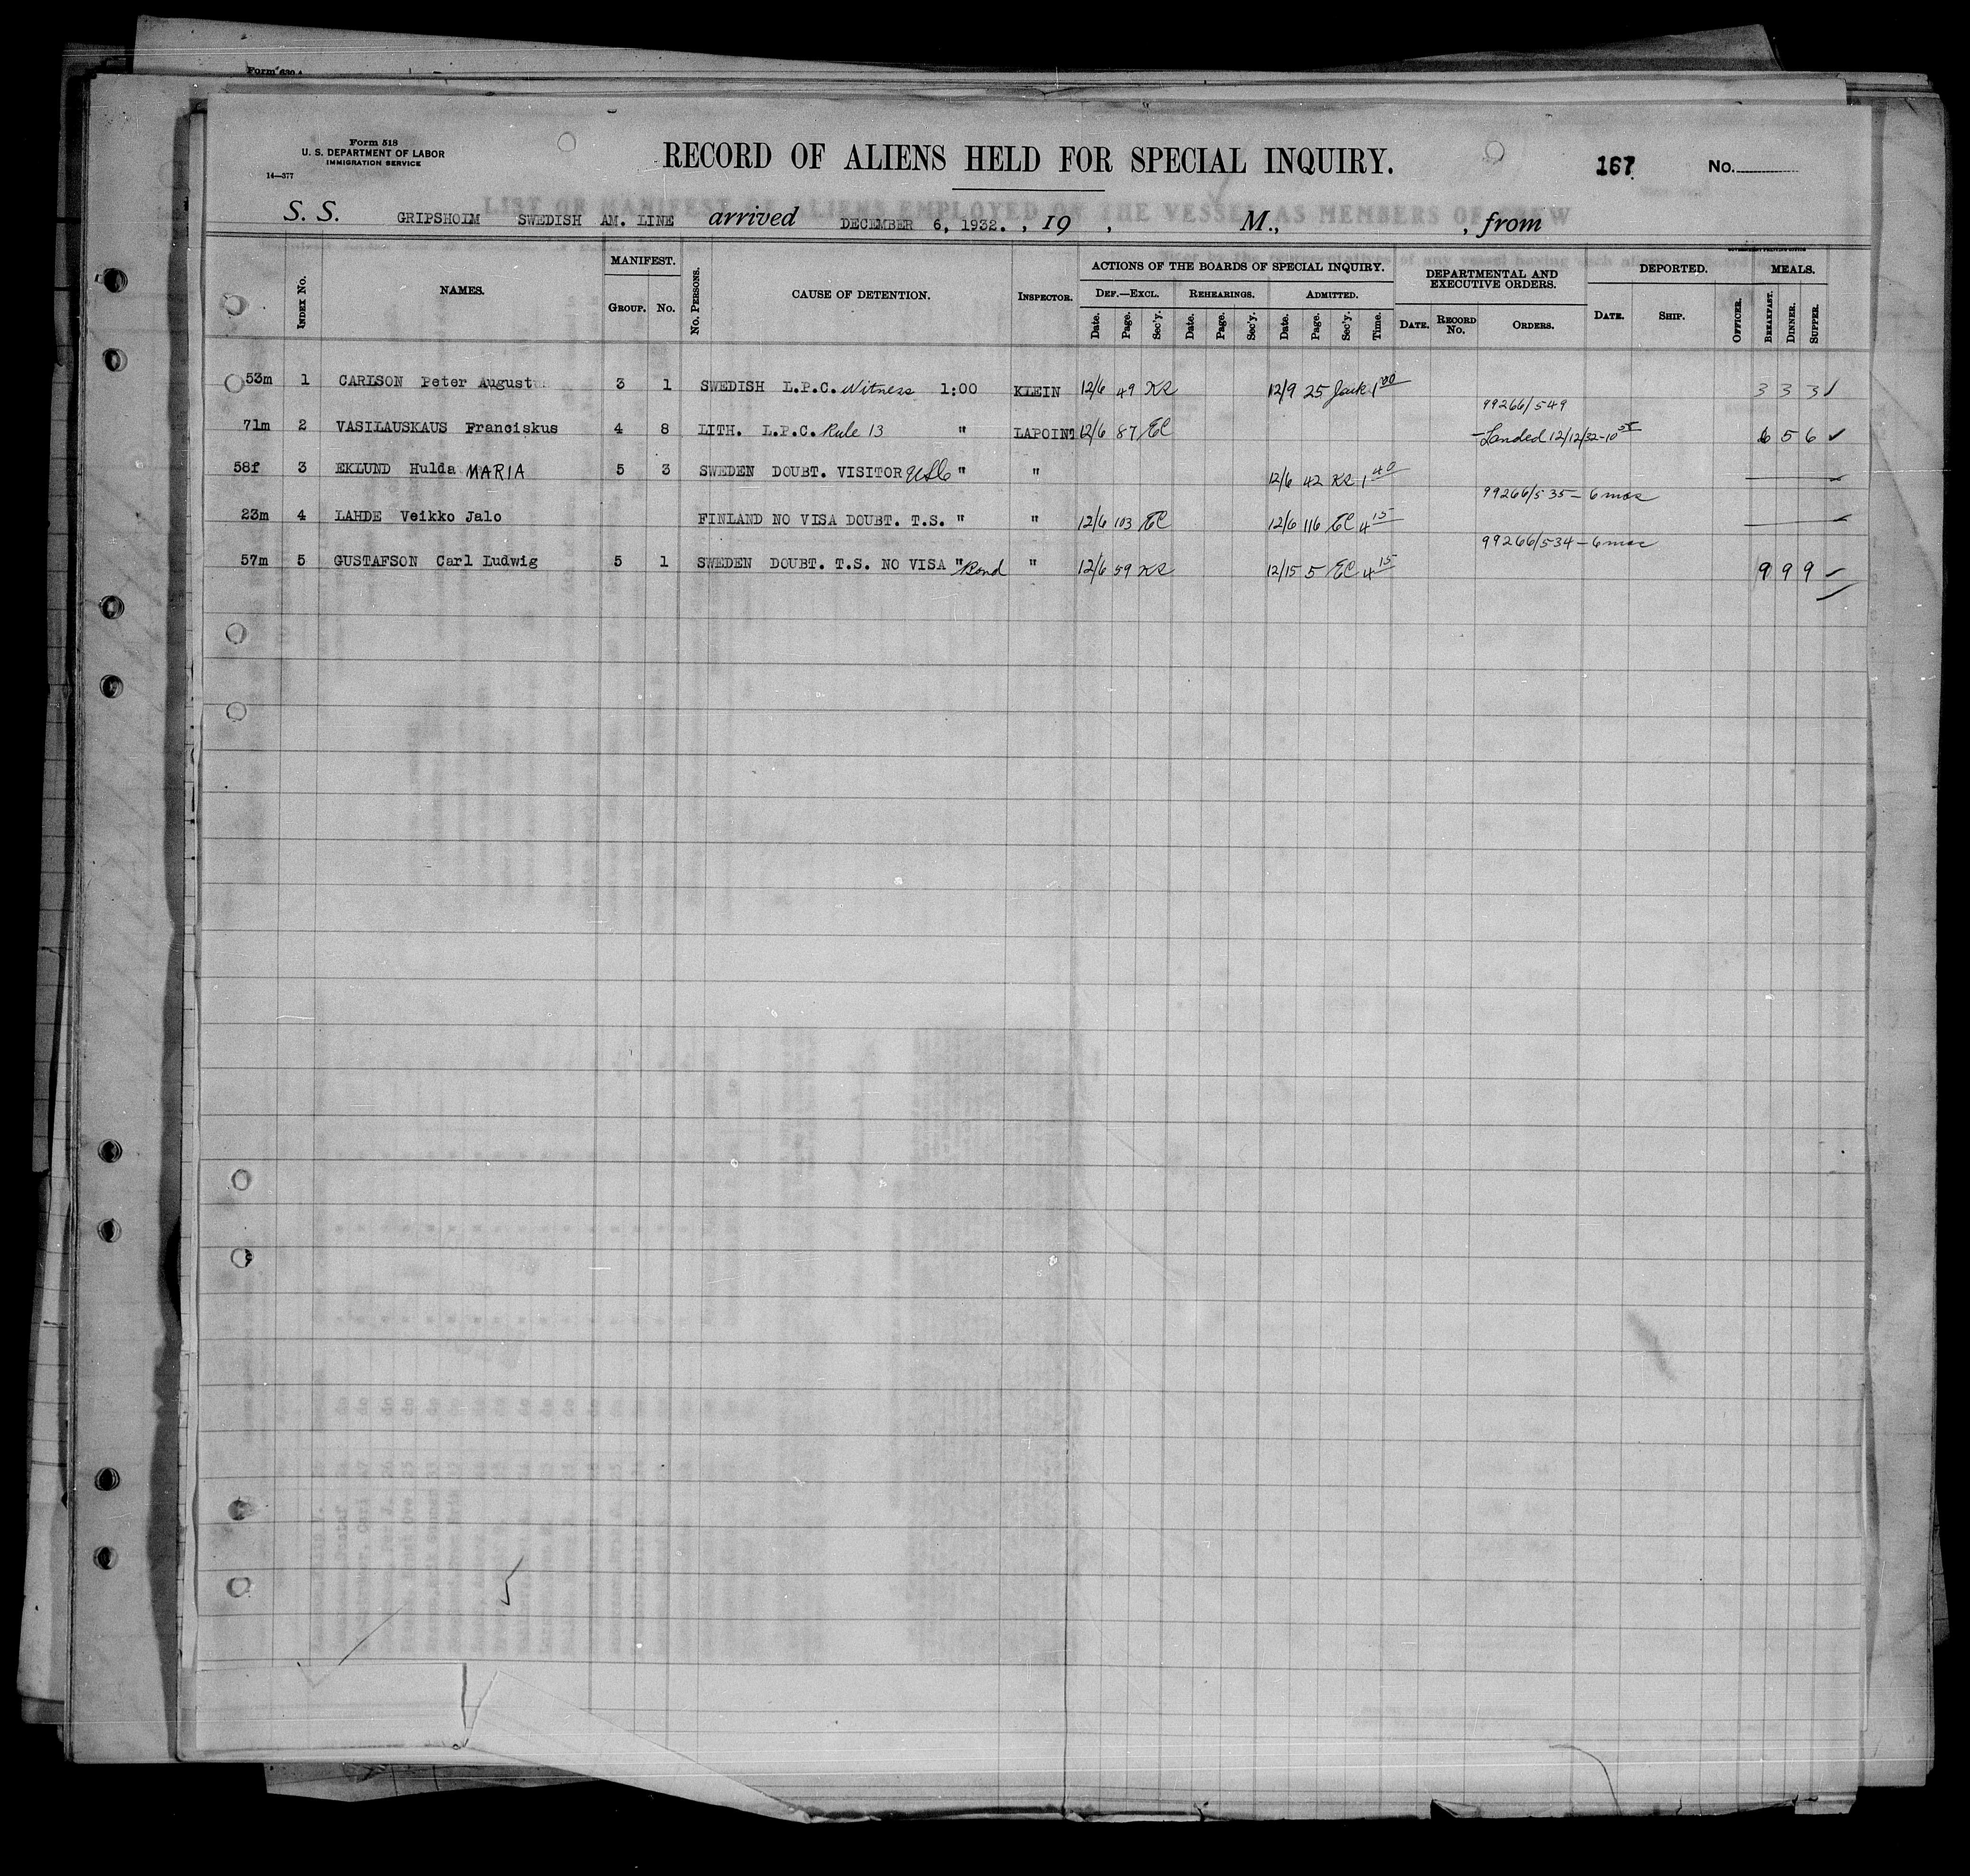 Form 630
Form 518
U. S. DEPARTMENT OF LABOR
IMMIGRATION SERVICE
14—377
RECORD OF ALIENS HELD FOR SPECIAL INQUIRY.
167
No.
LIST OR MANIFEST OF ALIENS EMPLOYED ON THE VESSEL AS MEMBERS OF CREW
S. S. GRIPSHOLM SWEDISH AM. LINE arrived DECEMBER 6, 1932. , 19 , M., , from
INDEX No. NAMES. MANIFEST. GROUP. No. No. PERSONS. CAUSE OF DETENTION. INSPECTOR. ACTIONS OF THE BOARDS OF SPECIAL INQUIRY. DEPARTMENTAL AND EXECUTIVE ORDERS. DEPORTED. MEALS.
DEF.—EXCL. REHEARINGS. ADMITTED.
Date. Page. Sec'y. Date. Page. Sec'y. Date. Page. Sec'y. Time. DATE. RECORD No. ORDERS. DATE. SHIP. OFFICER. BREAKFAST. DINNER. SUPPER.
53m 1 CARLSON Peter August 3 1 SWEDISH L.P.C. Witness 1:00 KLEIN 12/6 49 KR 12/9 25 Jack 1 00 3 3 3
99266/549
71m 2 VASILAUSKAUS Franciskus 4 8 LITH. L.P.C. Rule 13 " LAPOINT 12/6 87 EC -Landed 12/12/32-10 6 5 6
58f 3 EKLUND Hulda MARIA 5 3 SWEDEN DOUBT. VISITOR " " 12/6 42 KR 1 40
99266/535 - 6 mos
23m 4 LAHDE Veikko Jalo FINLAND NO VISA DOUBT. T.S. " " 12/6 103 EC 12/6 116 EC 4 15
99266/534 - 6 mos
57m 5 GUSTAFSON Carl Ludwig 5 1 SWEDEN DOUBT. T.S. NO VISA " Bond " 12/6 59 KR 12/15 5 EC 4 15 9 9 9
5